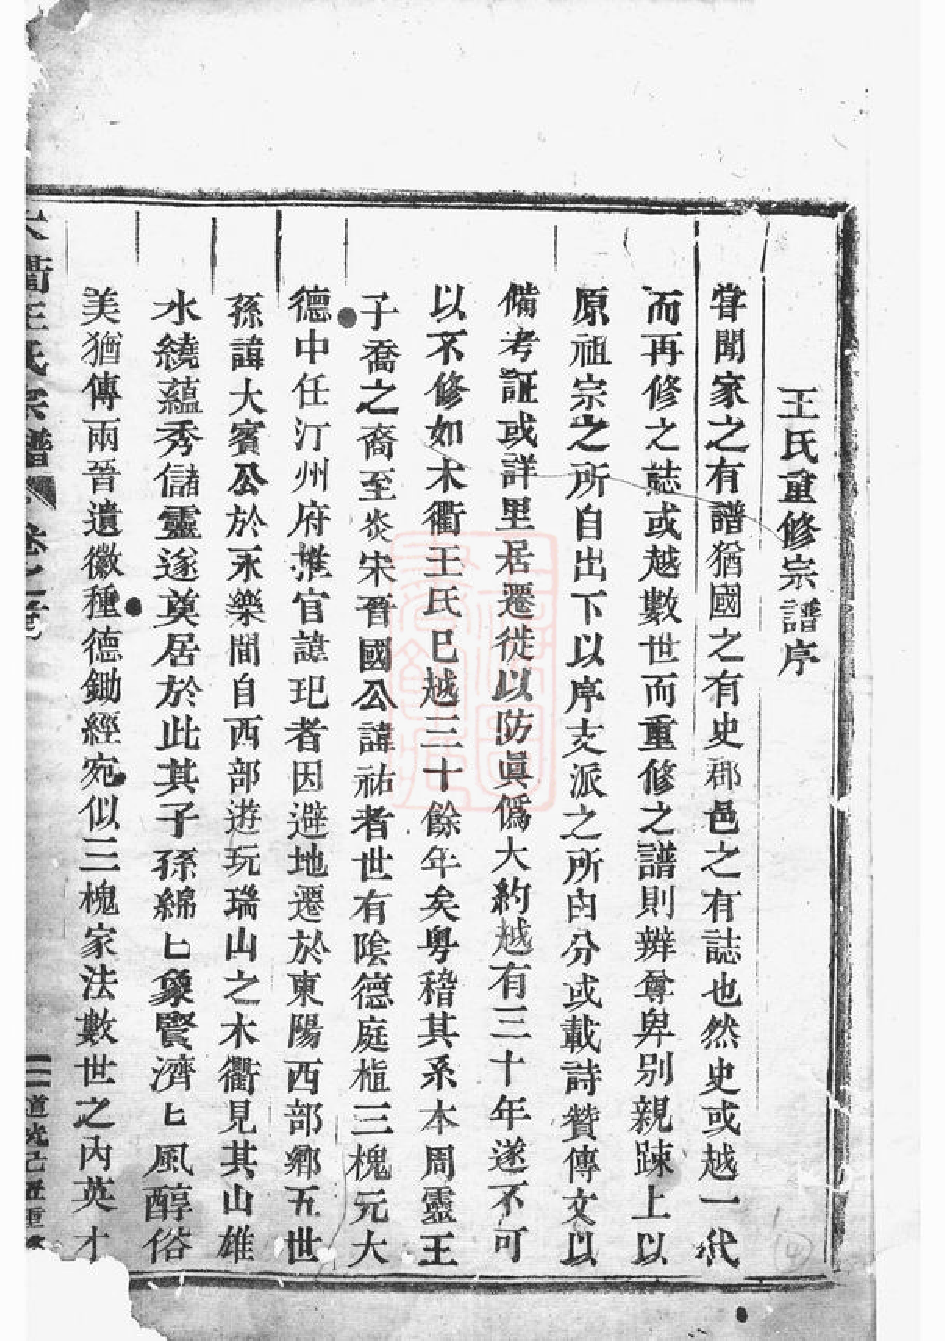 王氏重修宗譜序
甞聞家之有譜猶國之有史郡邑之有誌也然史或越一代
而再修之誌或越數世而重修之譜則辨尊卑別親踈上以
原祖宗之所自出下以序支派之所由分或載詩贊傳文以
備考証或詳里居遷徙以防眞僞大約越有三十年遂不可
以不修如木衢王氏已越三十餘年矣粵稽其系本周靈王
子喬之裔至炎宋晉國公諱祐者世有陰德庭植三槐元大
德中任汀州府推官諱玘者因避地遷於東陽西部鄉五世
孫諱大賓公於永樂間自西部遊玩瑞山之木衢見其山雄
水繞蘊秀儲靈遂奠居於此其子孫綿匕象賢濟匕風醇俗
美猶傳兩晉遺徽種德鋤經宛似三槐家法數世之內英才
木衢王氏宗譜 卷之
道光己酉重修